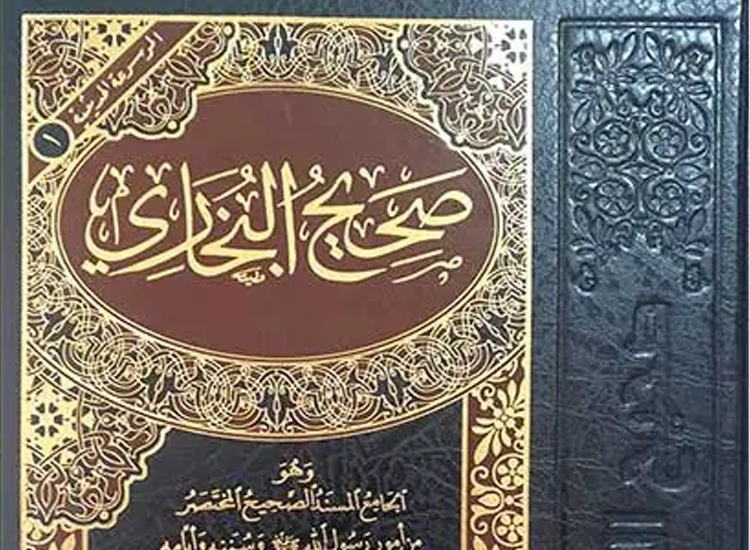 الموسوعة الحديثية
١
صَحِيحُ البُخَارِي
وَهُوَ
الجَامِعُ المُسْنَدُ الصَّحِيحُ المُخْتَصَرُ
مِنْ أُمُورِ رَسُولِ اللهِ ﷺ وَسُنَنِهِ وَأَيَّامِهِ